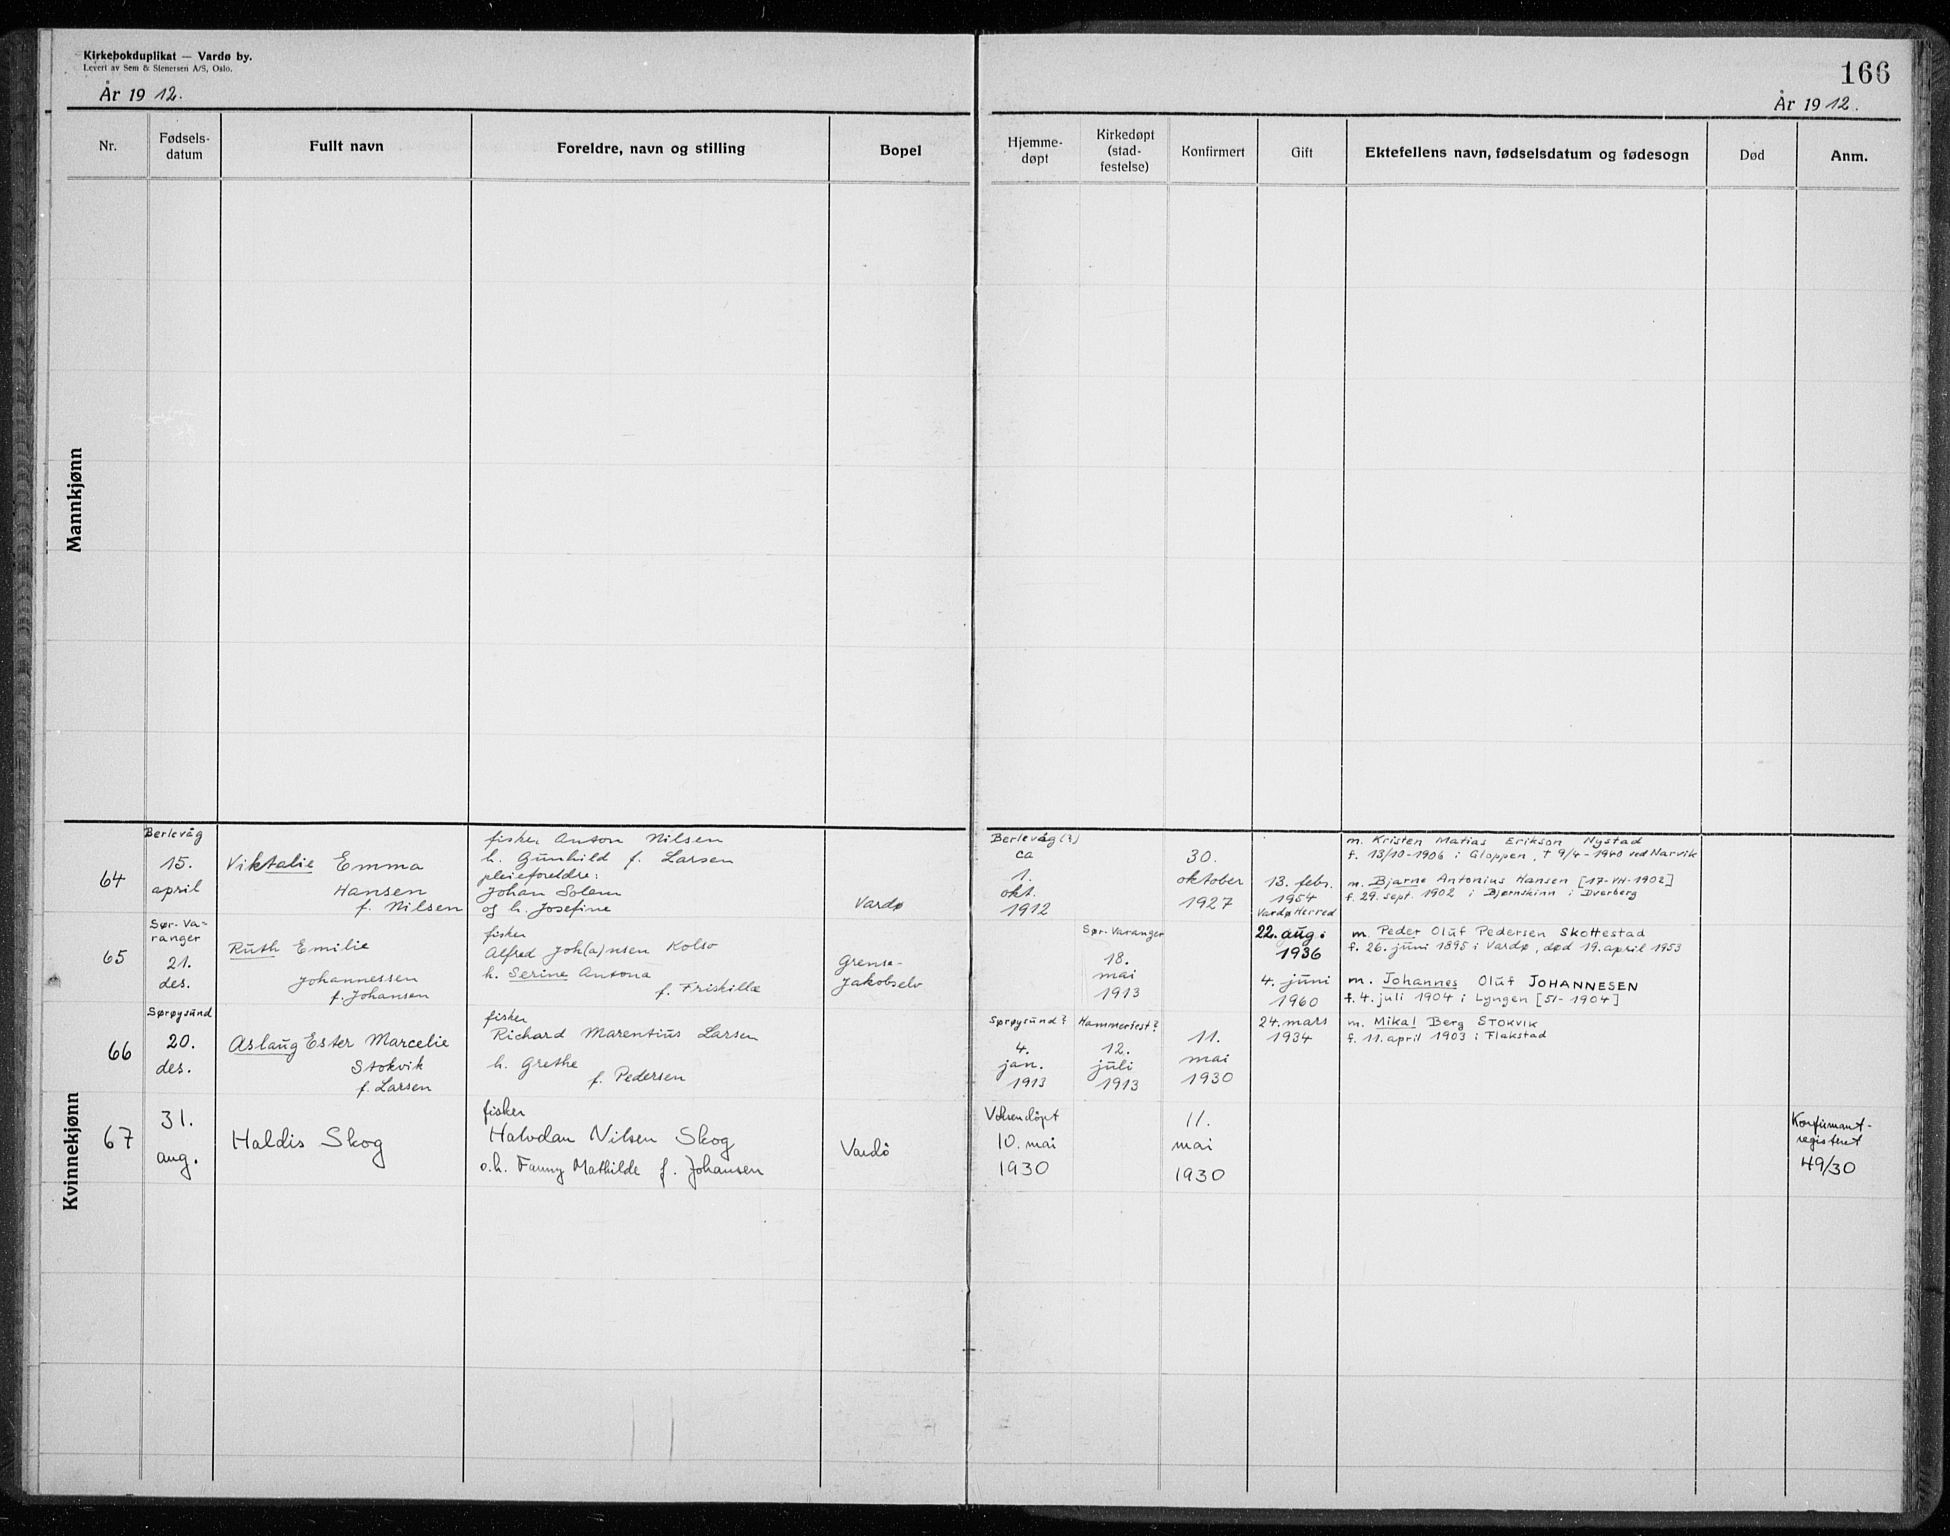 Kirkebokduplikat — Vardø by.
Levert av Sem & Stenersen A/S, Oslo.
År 1912.
166
År 1912.
Nr.
Fødsels-
datum
Fullt navn
Foreldre, navn og stilling
Bopel
Hjemme-
døpt
Kirkedøpt
(stad-
festelse)
Konfirmert
Gift
Ektefellens navn, fødselsdatum og fødesogn
Død
Anm.
Mannkjønn
Kvinnekjønn
64
Berlevåg
15.
april
Viktalie Emma
Hansen
f. Nilsen
fisker Anton Nilsen
h. Gunhild f. Larsen
pleieforeldre:
Johan Solem
og h. Josefine
Vardø
Berlevåg(?)
ca
1.
okt.
1912
30.
oktober
1927
13. febr.
1954
Vardø Herred
m. Kristen Matias Erikson Nystad
f. 13/10-1906 i Gloppen, † 9/4-1940 ved Narvik
m. Bjarne Antonius Hansen [17-VH-1902]
f. 29. sept. 1902 i Bjørnskinn i Dverberg
65
Sør-Va-
ranger
21.
des.
Ruth Emilie
Johannessen
f. Johansen
fisker
Alfred Joh(a)nsen Kolso
h. Serine Antona
f. Friskillæ
Grense-
Jakobselv
Sør-Varanger
18.
mai
1913
22. aug.
1936
4. juni
1960
m. Peder Oluf Pedersen Skottestad
f. 26. juni 1895 i Vardø, død 19. april 1953
m. Johannes Oluf JOHANNESEN
f. 4. juli 1904 i Lyngen [51-1904]
66
Sørøysund
20.
des.
Aslaug Ester Marcelie
Stokvik
f. Larsen
fisker
Richard Marentius Larsen
h. Grethe
f. Pedersen
Sørøysund?
4.
jan.
1913
Hammerfest?
12.
juli
1913
11.
mai
1930
24. mars
1934
m. Mikal Berg STOKVIK
f. 11. april 1903 i Flakstad
67
31.
aug.
Haldis Skog
fisker
Halvdan Nilsen Skog
o.h. Fanny Mathilde f. Johansen
Vardö
Voksendöpt
10. mai
1930
11.
mai
1930
Konfirmant-
registeret
49/30